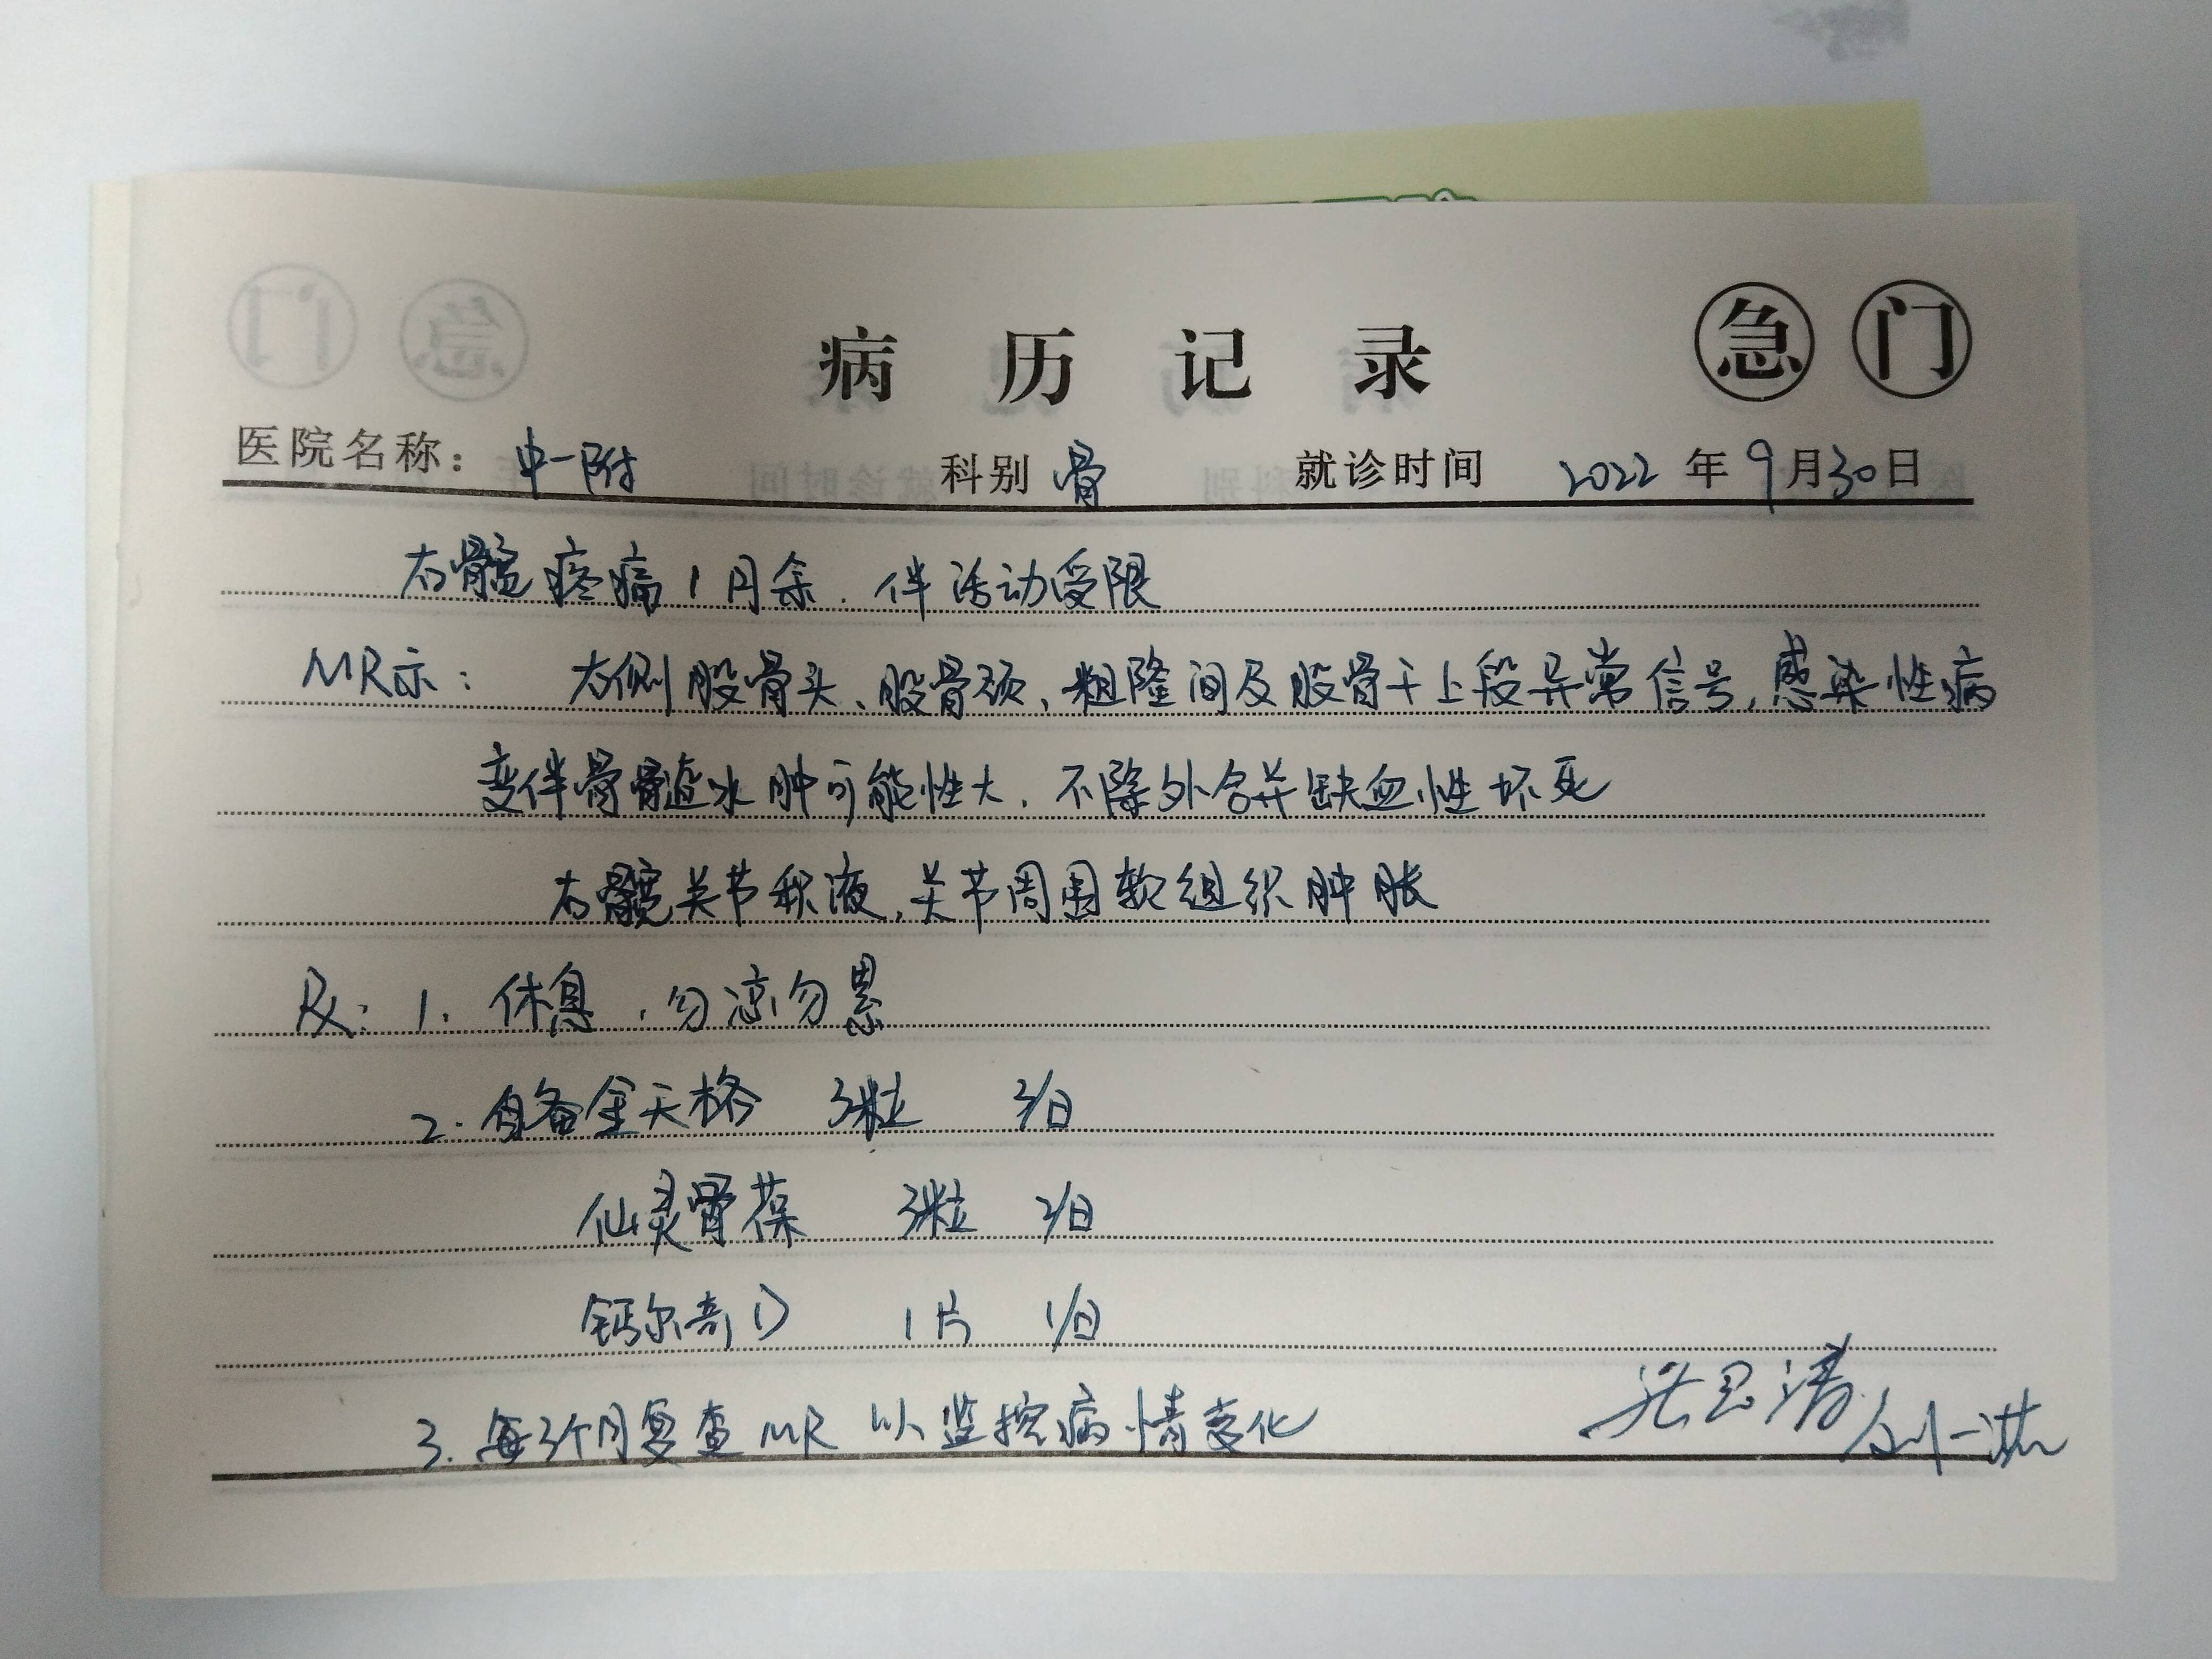 病历记录 急 门
医院名称：中一附 科别 骨 就诊时间 2022年9月30日
右髋疼痛1月余.伴活动受限
MR示：右侧股骨头、股骨颈、粗隆间及股骨干上段异常信号,感染性病
变伴骨髓水肿可能性大.不除外合并缺血性坏死
右髋关节积液,关节周围软组织肿胀
Rx: 1. 休息.勿凉勿累
2. 自备金天格 3粒 3/日
仙灵骨葆 3粒 2/日
钙尔奇D 1片 1/日
3. 每3个月复查MR以监控病情变化